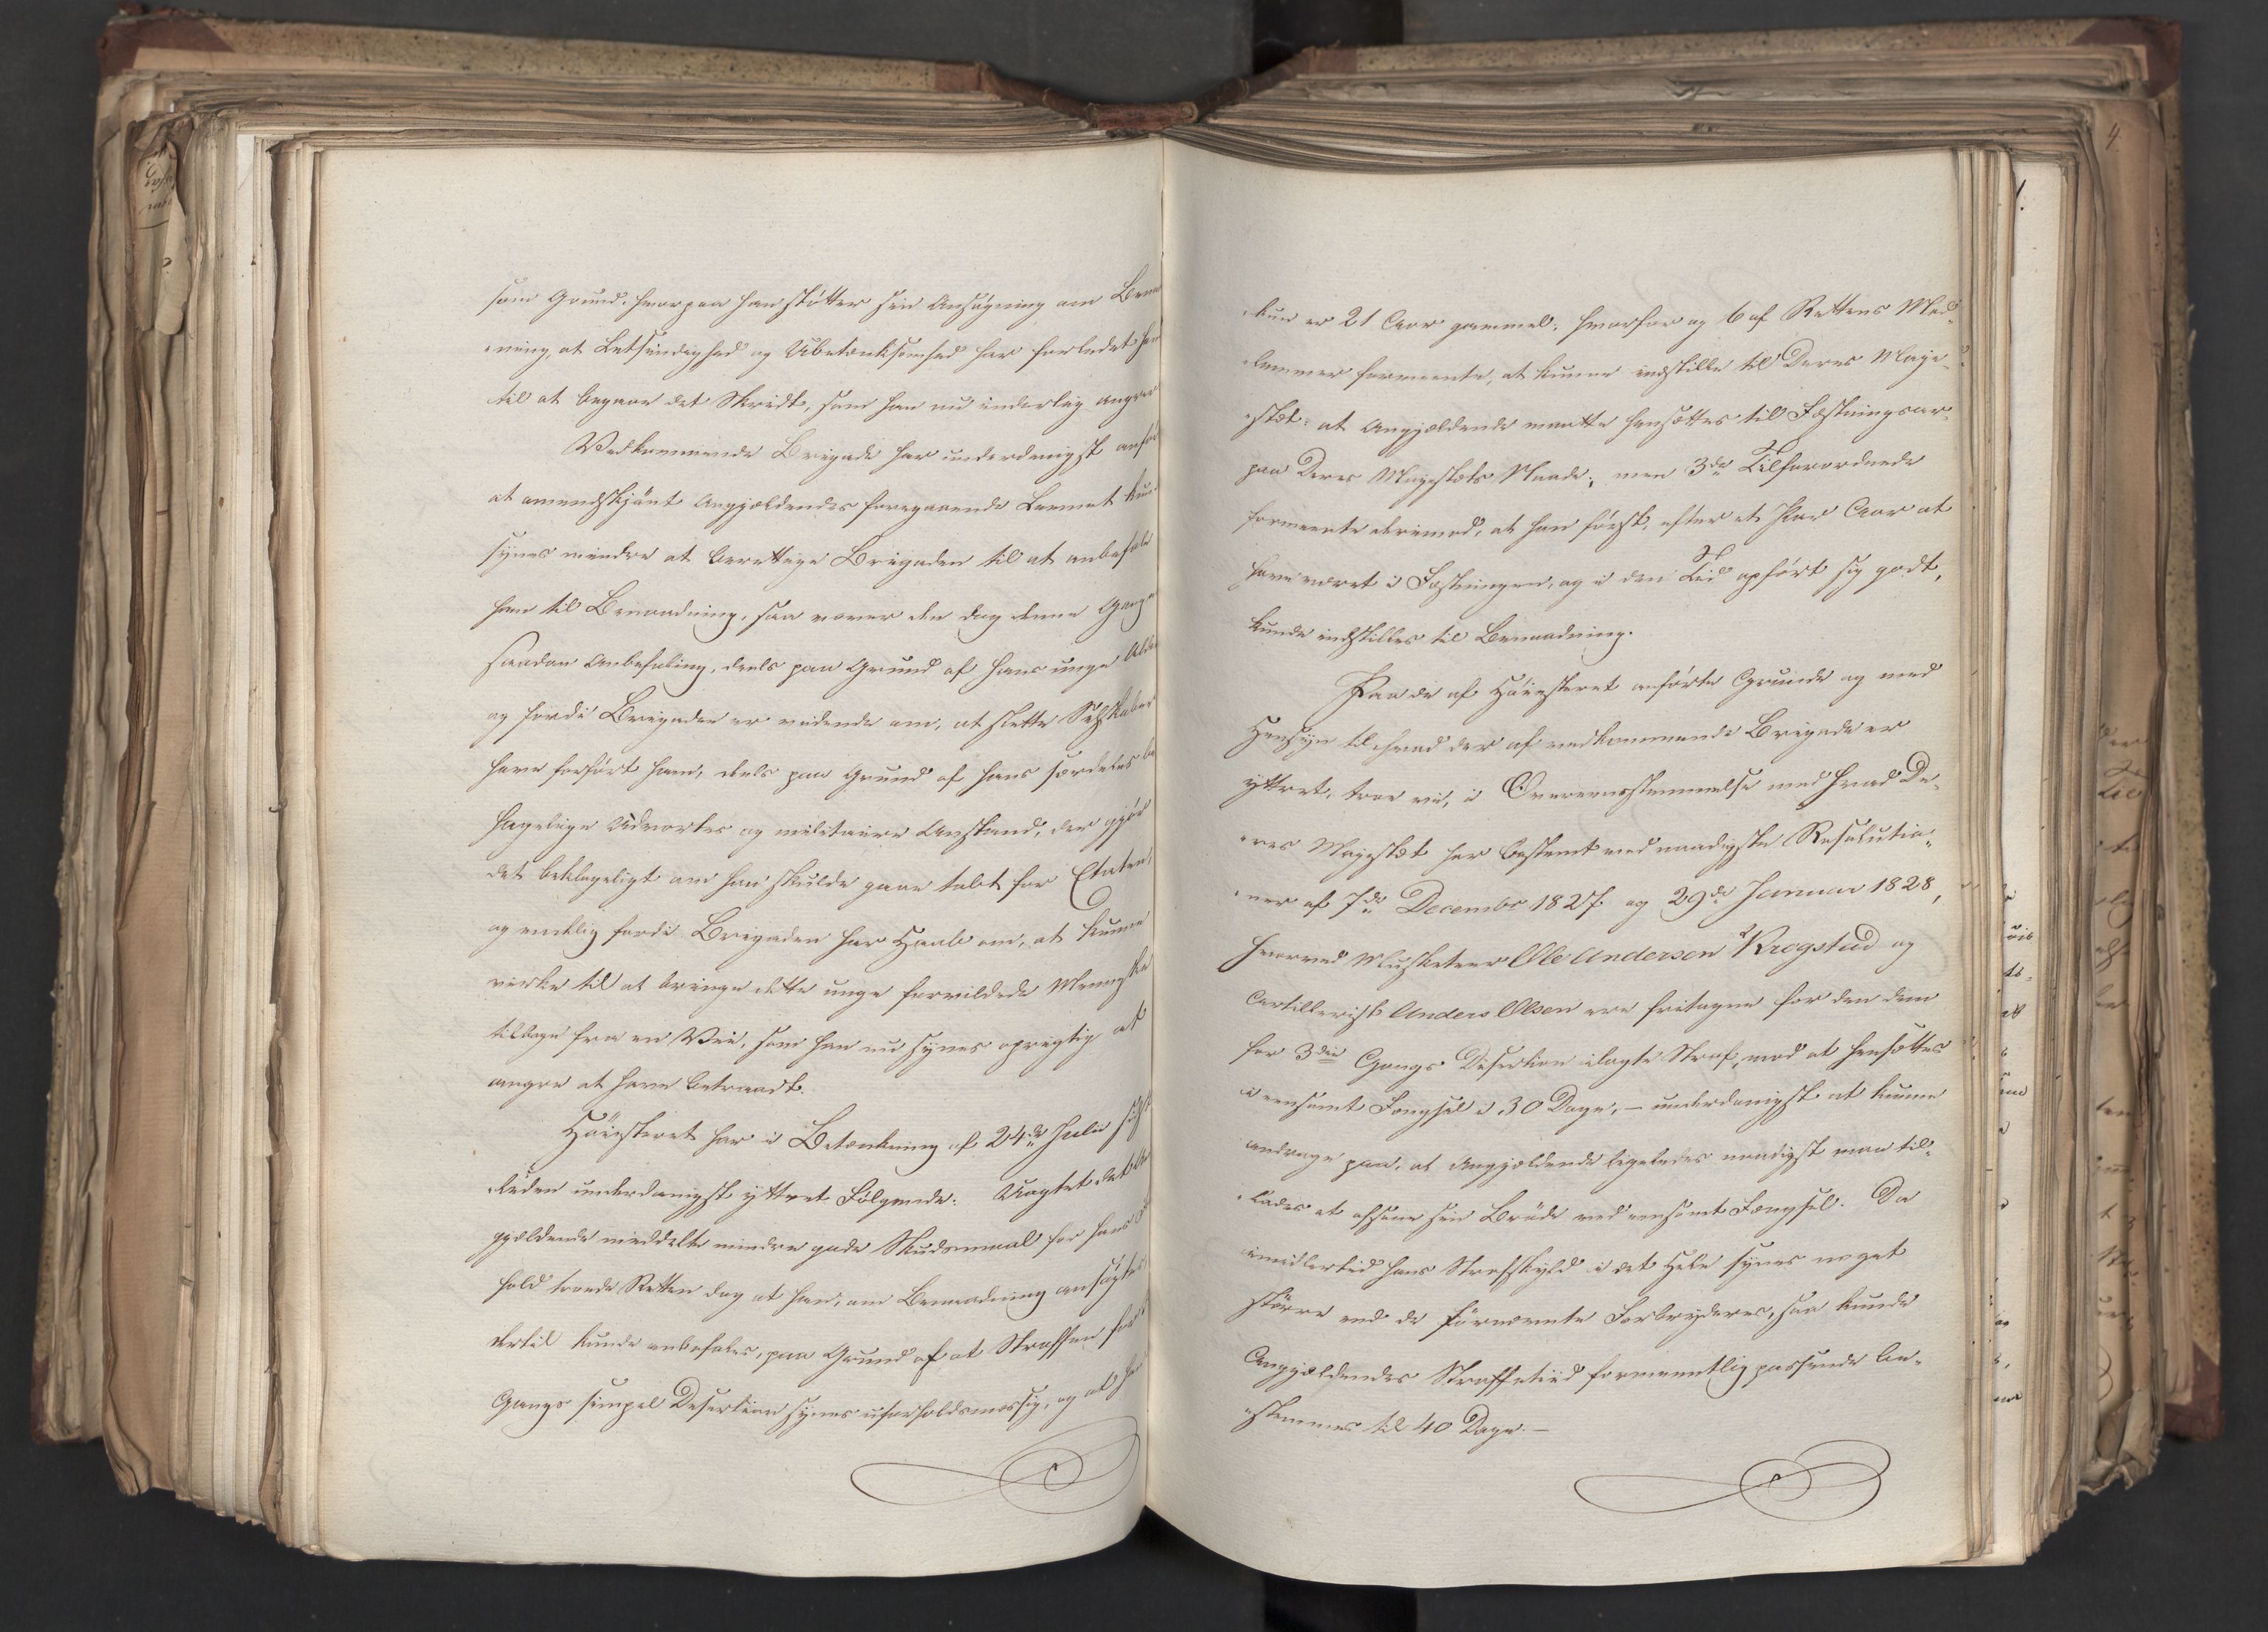 som Grund, hvorpaa han støtter sin Ansøgning om Benaa
„ning, at Letsindighed og Ubetænksomhed har forledet ham
til at begaae det Skridt, som han nu inderlig angrer
Vedkommende Brigade har underdanigst anført
at omendskjønt Angjældendes foregaaende Levnet kun
synes mindre at berettige Brigaden til at anbefale
ham til Benaadning, saa vover den dog denne Gang
saadan Anbefaling, deels paa Grund af hans unge Alder
og fordi Brigaden er vidende om, at slette Selskaber
have forført ham, deels paa Grund af hans særdeles be
hagelige Udvortes og militaire Anstand, der gjør
det beklageligt om han skulde gaae tabt for Etaten,
og endelig fordi Brigaden har Haab om, at kunne
virke til at bringe dette unge forvildede Menneske
tilbage fra en Vei, som han nu synes oprigtig at
angre at have betraadt.
Høiesteret har i Betænkning af 24de Julii sidst
„leden underdanigst yttret Følgende: Uagtet det An
gjældende meddelte mindre gode Skudsmaal for hans
hold troede Retten dog at han, om Benaadning ansøgte,
dertil kunde anbefales, paa Grund af at Straffen for
Gangs simpel Desertion synes uforholdsmæssig, og at han
„kun er 21 Aar gammel; hvorfor og 6 af Rettens Med„
„lemmer formeente, at kunne indstille til Deres Maje„
„stæt: at Angjældende maatte hensættes til Fæstningsar„
paa Deres Majestæts Naade; men 3de Tilforordnede
formeente derimod, at han først, efter et Par Aar at
have været i Fæstningen, og i den Tid opført sig godt,
kunde indstilles til Benaadning.
Paa de af Høiesteret anførte Grunde og med
Hensyn til hvad der af vedkommende Brigade er
yttret, troe vi, i Overeensstemmelse med hvad De„
„res Majestæt har bestemt ved naadigste Resolutio„
„ner af 7de December 1827 og 29de Januar 1828,
hvorved Musketeer Ole Andersen Krogstad og
Artillerist Anders Olsen ere fritagne for den dem
for 3die Gangs Desertion ilagte Straf, mod at hensættes
i eensomt Fængsel i 30 Dage, — underdanigst at kunne
andrage paa, at Angjældende ligeledes naadigst maa til„
„lades at afsone sin Brøde ved eensomt Fængsel. Da
imidlertid hans Strafskyld i det Hele synes noget
større end de førnævnte Forbryderes, saa kunde
Angjældendes Straffetiid formeentlig passende be„
„stemmes til 40 Dage. —